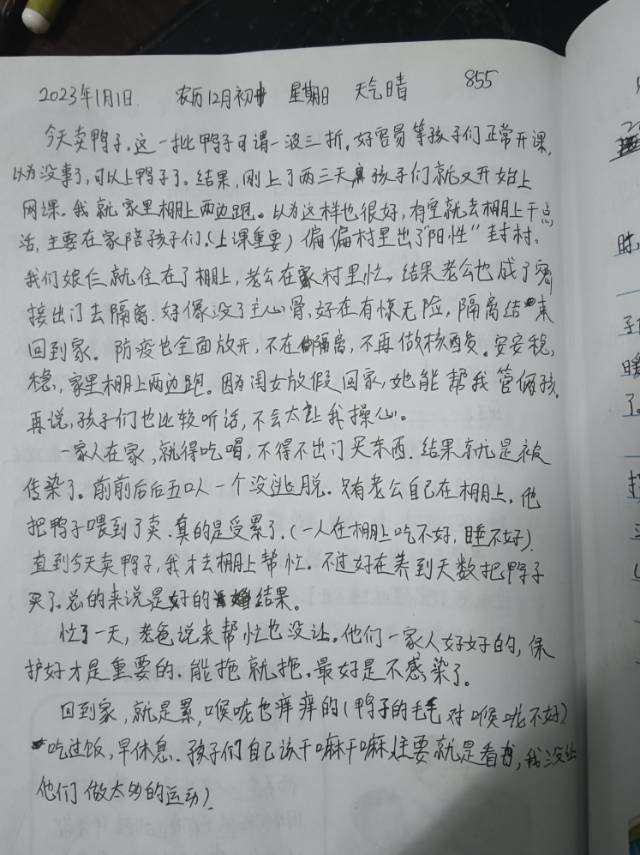 2023年1月1日 农历12月初十 星期日 天气晴 855
今天卖鸭子。这一批鸭子可谓一波三折。好容易等孩子们正常开课,
以为没事了,可以上鸭子了。结果,刚上了两三天孩子们就又开始上
网课。我就家里棚上两边跑。以为这样也很好,有空就去棚上干点
活,主要在家陪孩子们,(上课重要)偏偏村里出了“阳性”封村,
我们娘仨就住在了棚上,老公在家村里忙。结果老公也成了密
接出门去隔离。好像没了主心骨,好在有惊无险,隔离结束
回到家。防疫也全面放开,不在隔离,不再做核酸。安安稳
稳,家里棚上两边跑。因为闺女放假回家,她能帮我管俩孩
再说,孩子们也比较听话,不会太让我操心。
一家人在家,就得吃喝,不得不出门买东西。结果就是被
传染了。前前后后五口人一个没逃脱。只有老公自己在棚上,他
把鸭子喂到了卖。真的是受累了。(一人在棚上吃不好,睡不好)
直到今天卖鸭子,我才去棚上帮忙。不过好在养到天数把鸭子
买了。总的来说是好的结果。
忙了一天,老爸说来帮忙也没让。他们一家人好好的,保
护好才是重要的。能拖就拖。最好是不感染了。
回到家,就是累,喉咙也痒痒的(鸭子的毛对喉咙不好)
吃过饭,早休息。孩子们自己该干嘛干嘛(主要就是看书,我没让
他们做太多的运动)
时
子
暖
了。